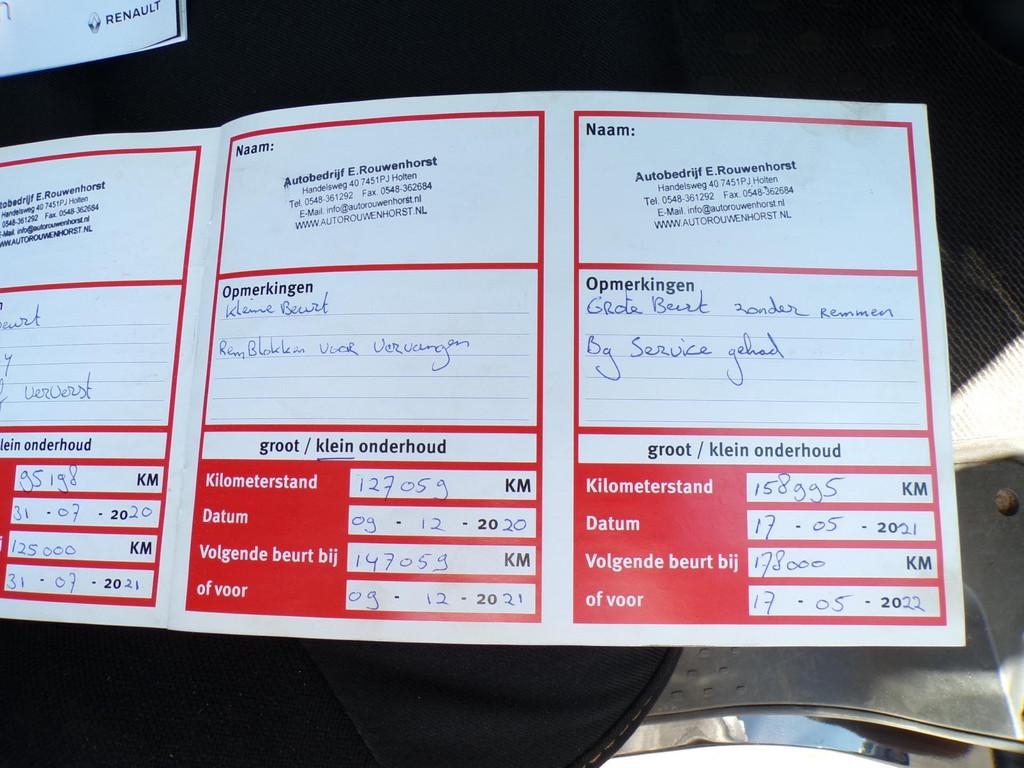 RENAULT
tobedrijf E.Rouwenhorst
Handelsweg 40 7451PJ Holten
0548-361292 Fax. 0548-362684
E-Mail. info@autorouwenhorst.nl
WWW.AUTOROUWENHORST.NL
eurt
ververst
klein onderhoud
95198 KM
31 - 07 - 2020
125000 KM
31 - 07 - 2021
Naam:
Autobedrijf E.Rouwenhorst
Handelsweg 40 7451PJ Holten
Tel. 0548-361292 Fax. 0548-362684
E-Mail. info@autorouwenhorst.nl
WWW.AUTOROUWENHORST.NL
Opmerkingen
Kleine Beurt
RemBlokken voor vervangen
groot / klein onderhoud
Kilometerstand 127059 KM
Datum 09 - 12 - 2020
Volgende beurt bij 147059 KM
of voor 09 - 12 - 2021
Naam:
Autobedrijf E.Rouwenhorst
Handelsweg 40 7451PJ Holten
Tel. 0548-361292 Fax. 0548-362684
E-Mail. info@autorouwenhorst.nl
WWW.AUTOROUWENHORST.NL
Opmerkingen
Grote Beurt zonder Remmen
Bg Service gehad
groot / klein onderhoud
Kilometerstand 158995 KM
Datum 17 - 05 - 2021
Volgende beurt bij 178000 KM
of voor 17 - 05 - 2022